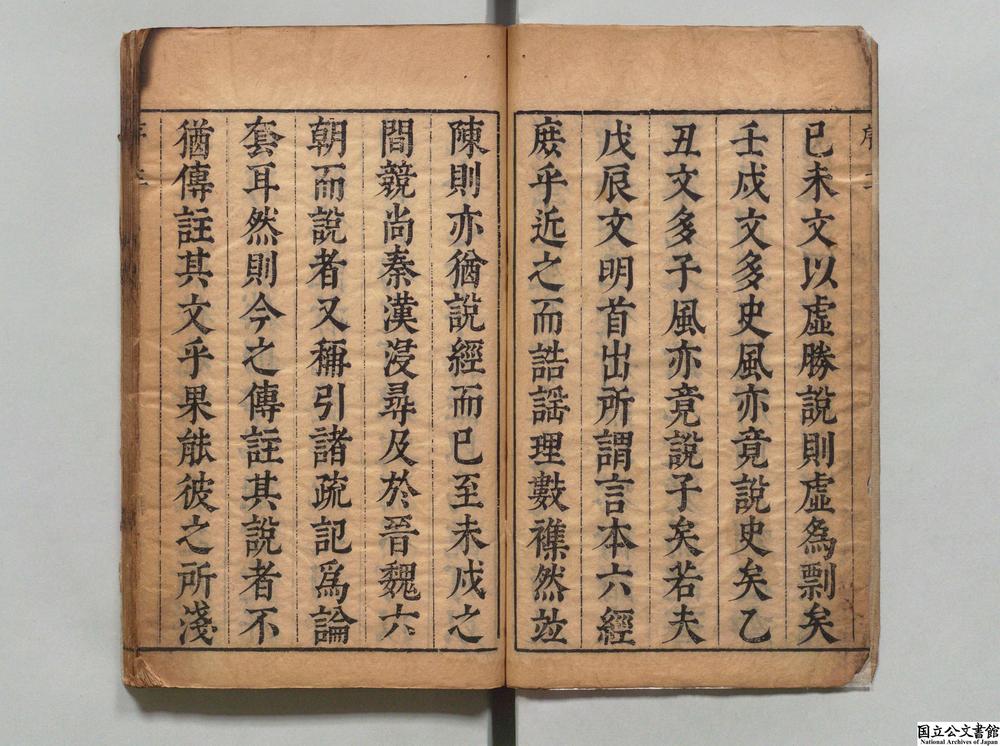 己未文以虛勝說則虛為剽矣
壬戌文多史風亦竟說史矣乙
丑文多子風亦竟說子矣若夫
戊辰文明首出所謂言本六經
庶乎近之而誥謡理數襍然竝
陳則亦猶說經而已至未戌之
間競尚秦漢浸尋及於晉魏六
朝而說者又稱引諸疏記爲論
套耳然則今之傳註其說者不
猶傳註其文乎果能彼之所淺
国立公文書館
National Archives of Japan